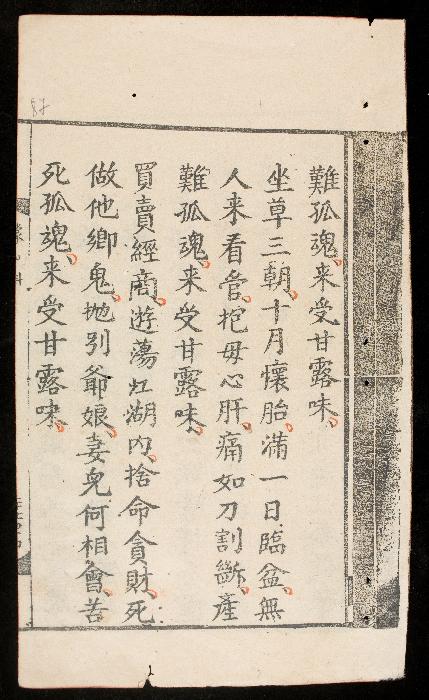 難孤魂、来受甘露味、
坐草三朝、十月懷胎、滿一日臨盆、無
人来看管、抱母心肝、痛如刀割斷、產
難孤魂、来受甘露味、
買賣經商、遊蕩江湖内、捨命貪財、死
做他鄉鬼、抛别爺娘、妻兒何相會、苦
死孤魂、来受甘露味、